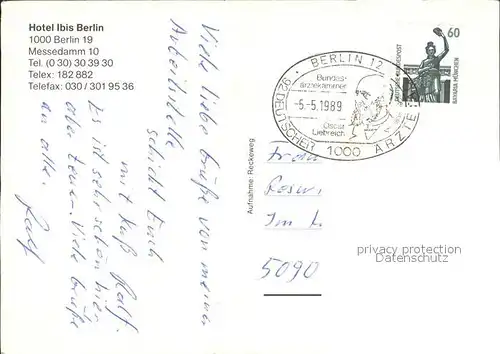 Hotel Ibis Berlin
1000 Berlin 19
Messedamm 10
Tel. (0 30) 30 39 30
Telex: 182 882
Telefax: 030 / 301 95 36
Viele liebe Grüße von meiner
Arbeitsstelle
schickt Euch
mit Kuß Ralf.
Es ist sehr schön hier
aber teuer. Viele Grüße
an alle. Ralf
Aufnahme: Reckeweg
BERLIN 12
92. DEUTSCHER ÄRZTE
Bundes-
ärztekammer
-5.-5.1989
Oscar
Liebreich
1000
60
DEUTSCHE BUNDESPOST
BAVARIA MÜNCHEN
Frau
Im
5090
privacy protection
Datenschutz